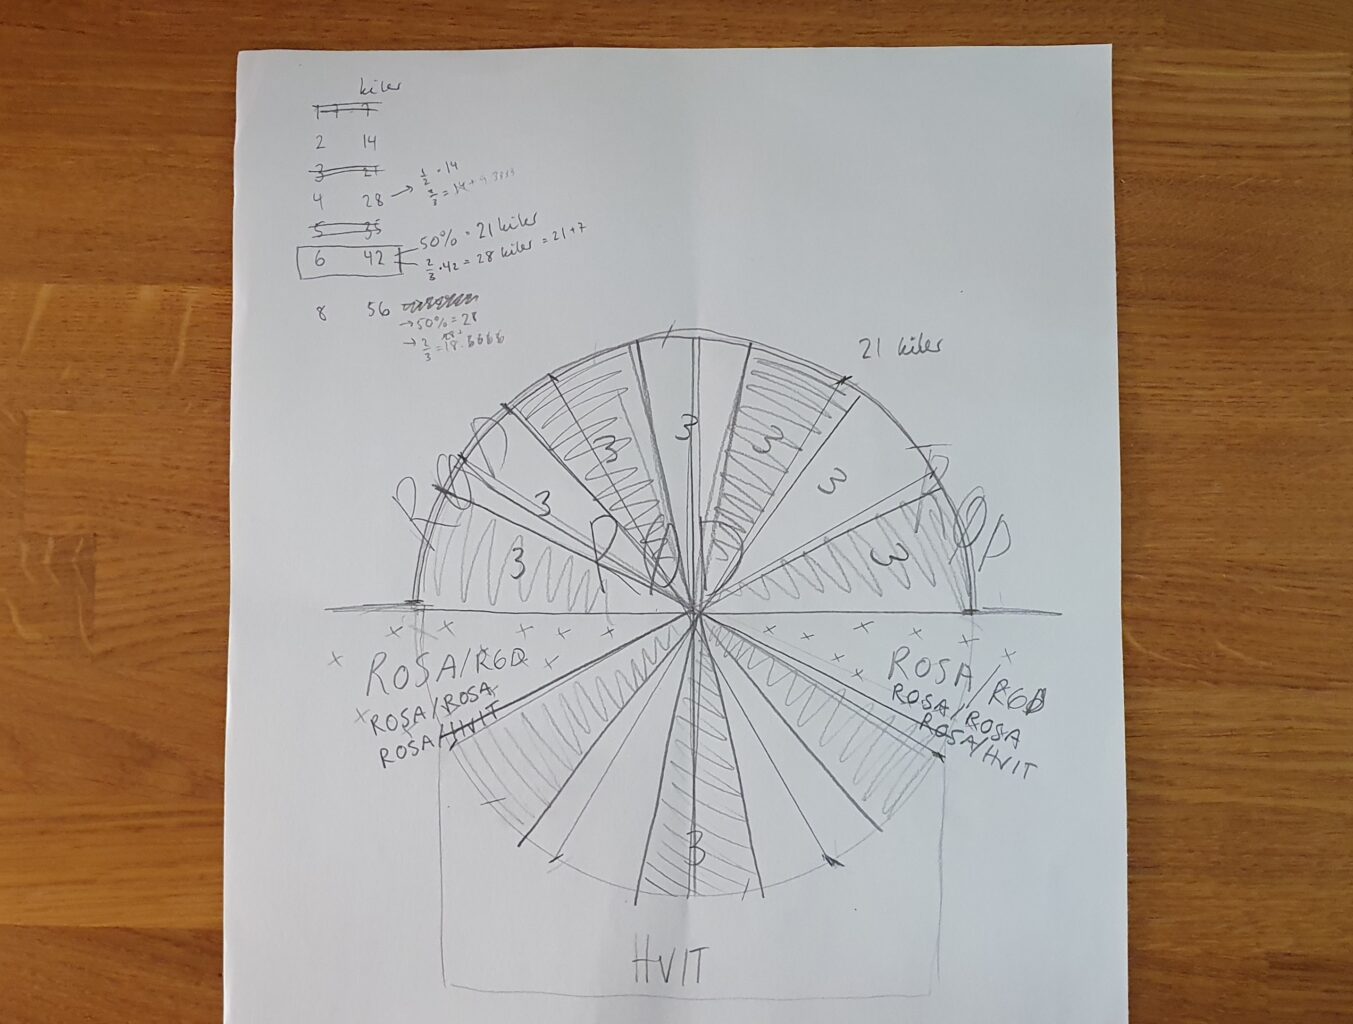 kiler
1 7
2 14
3 21
4 28 → 1/2 = 14
5 35
6 42 50% = 21 kiler
2/3 · 42 = 28 kiler = 21+7
8 56
→ 50% = 28
→ 2/3 = 18.6666
21 kiler
3 3 3 3 3
3 3
RØD
HVIT
ROSA/RØD
ROSA/ROSA
ROSA/HVIT
ROSA/RØD
ROSA/ROSA
ROSA/HVIT
3
HVIT